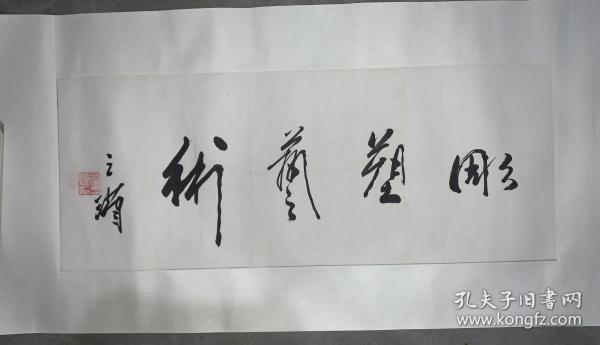 彫塑藝術
之濒
孔夫子旧书网
www.kongfz.com